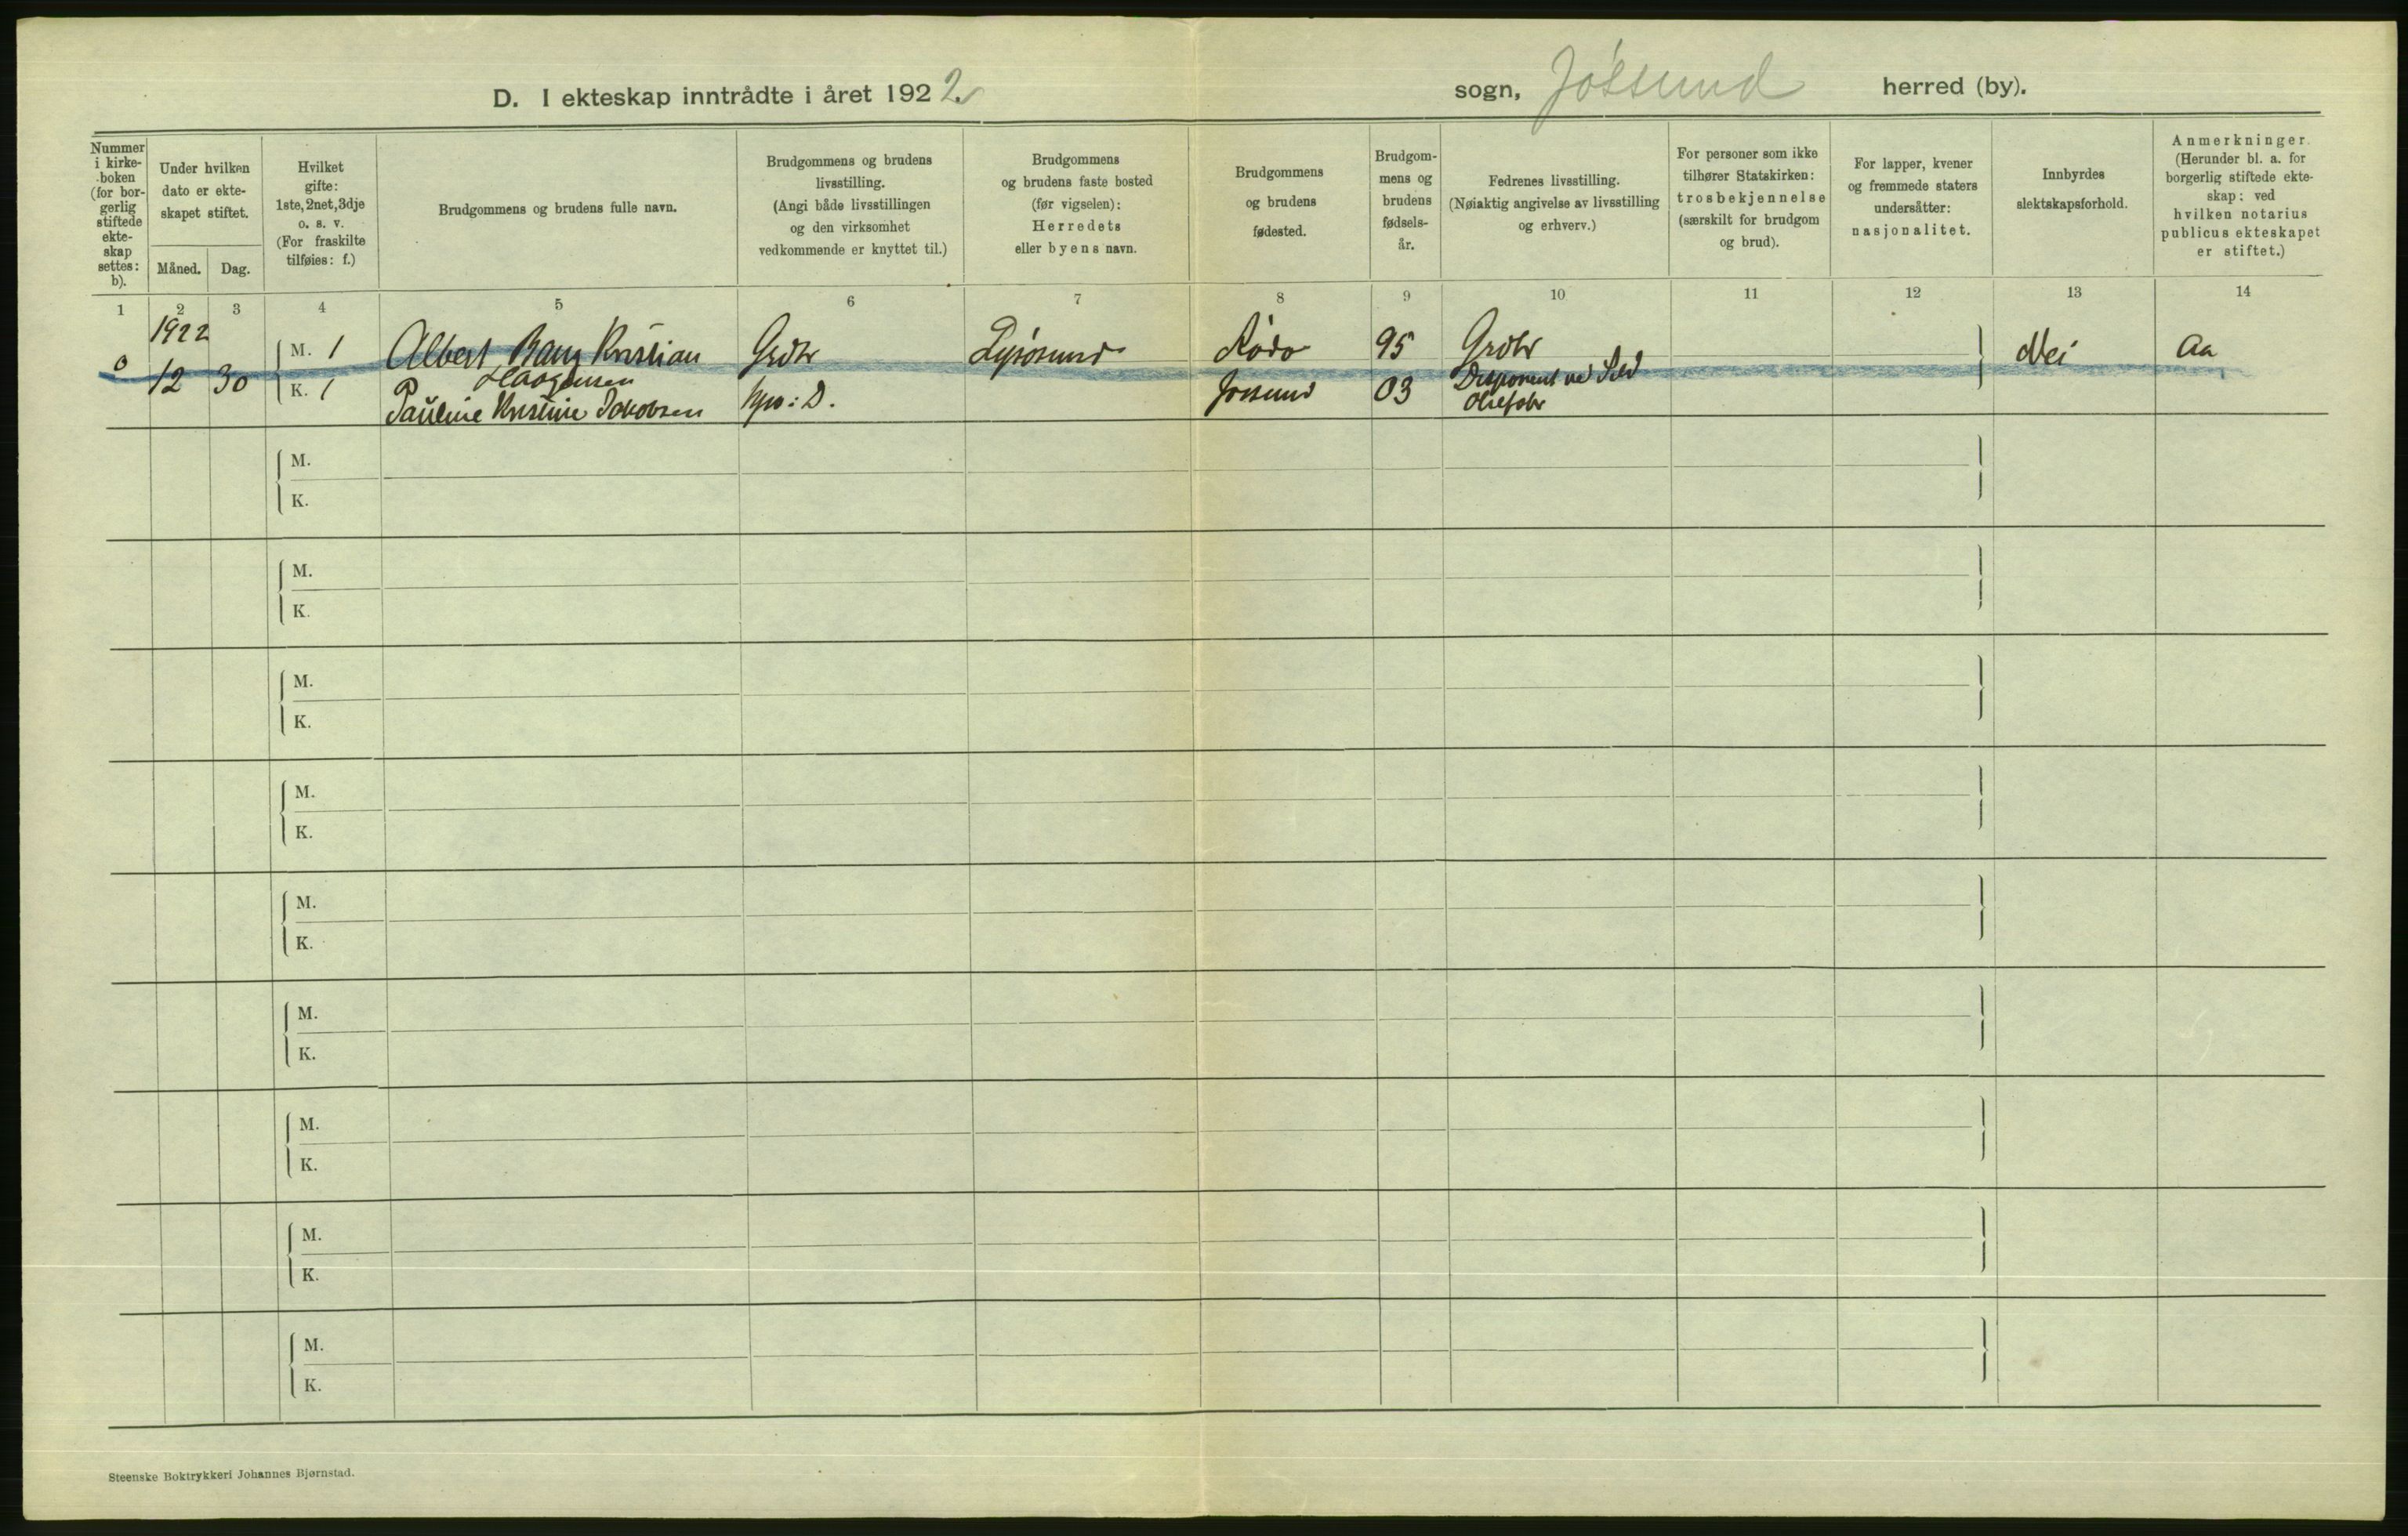 D. I ekteskap inntrådte i året 1922
sogn, Jøssund herred (by).
Nummer i kirke-boken (for bor-gerlig stiftede ekte-skap settes: b).
Under hvilken dato er ekte-skapet stiftet.
Måned. Dag.
Hvilket gifte: 1ste, 2net, 3dje o. s. v. (For fraskilte tilføies: f.)
Brudgommens og brudens fulle navn.
Brudgommens og brudens livsstilling. (Angi både livsstillingen og den virksomhet vedkommende er knyttet til.)
Brudgommens og brudens faste bosted (før vigselen): Herredets eller byens navn.
Brudgommens og brudens fødested.
Brudgom-mens og brudens fødsels-år.
Fedrenes livsstilling. (Nøiaktig angivelse av livsstilling og erhverv.)
For personer som ikke tilhører Statskirken: trosbekjennelse (særskilt for brudgom og brud).
For lapper, kvener og fremmede staters undersåtter: nasjonalitet.
Innbyrdes slektskapsforhold.
Anmerkninger. (Herunder bl. a. for borgerlig stiftede ekte-skap: ved hvilken notarius publicus ekteskapet er stiftet.)
1 2 3 4 5 6 7 8 9 10 11 12 13 14
1922
M. 1 Albert Kristian Grdbr Lysøsund Rödö 95 Grdbr Nei Aa
0 12 30 K. 1 Haagensen
Pauline Kristine Jakobsen D. Jøssund 03 Disponent ved Sild
M.
K.
M.
K.
M.
K.
M.
K.
M.
K.
M.
K.
M.
K.
M.
K.
M.
K.
Steenske Boktrykkeri Johannes Bjørnstad.